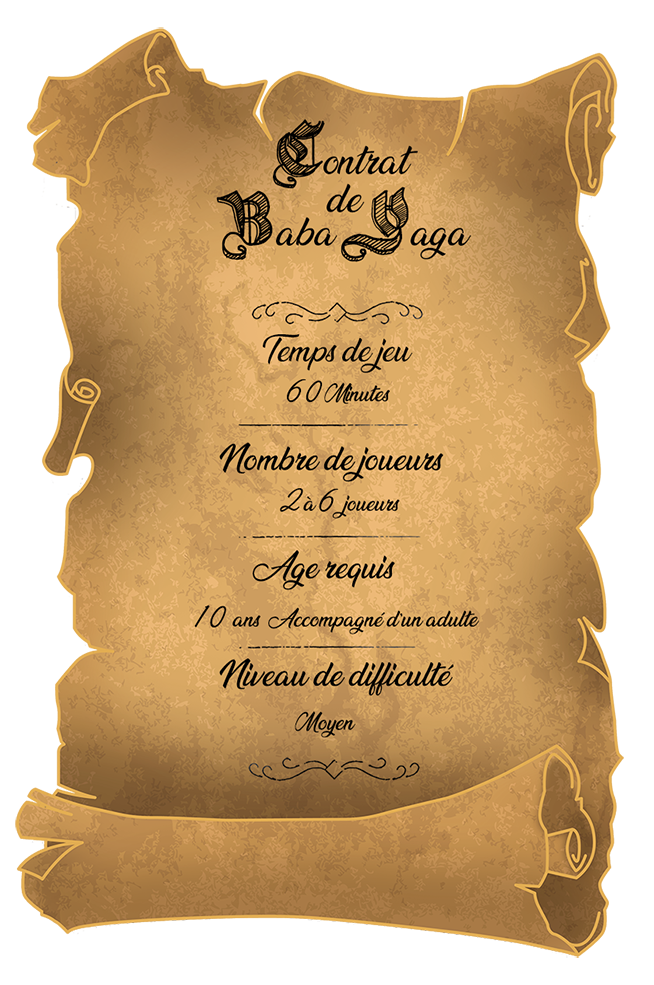 Contrat
de
Baba Yaga
Temps de jeu
60 Minutes
Nombre de joueurs
2 à 6 joueurs
Age requis
10 ans Accompagné d'un adulte
Niveau de difficulté
Moyen